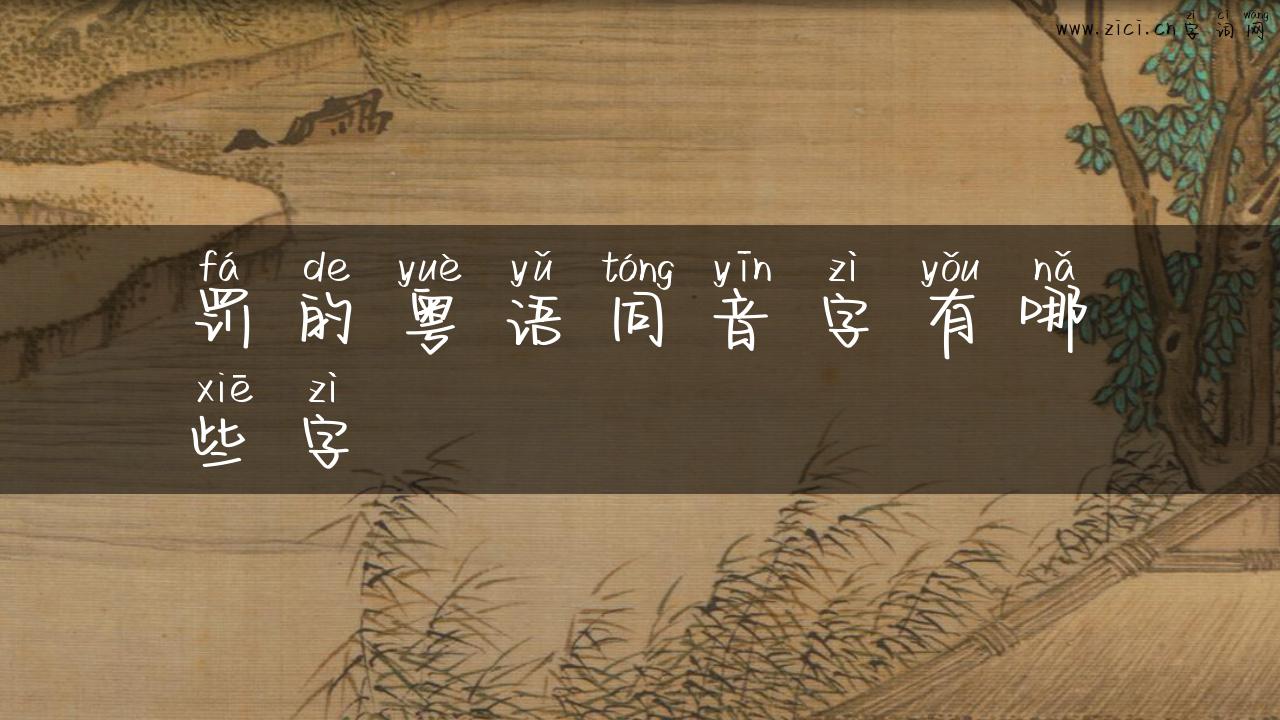 zì cí wǎng
www.zici.cn字词网
fá de yuè yǔ tóng yīn zì yǒu nǎ
罚的粤语同音字有哪
xiē zì
些字